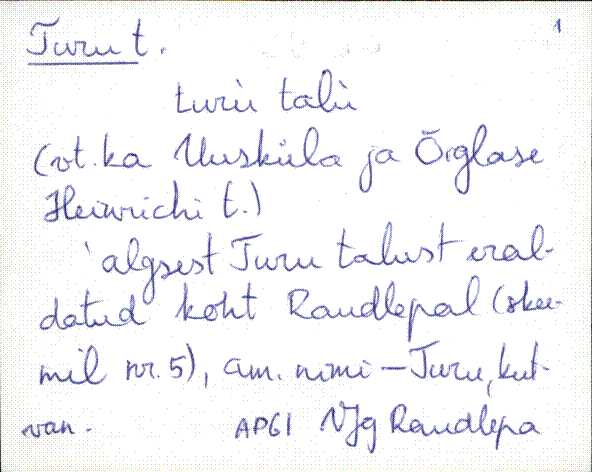 1
Turu t.
turu talu
(vt. ka Uusküla ja Õrglase
Heinrichi t.)
'algsest Turu talust eral-
datud koht Raudlepal (skee-
mil nr. 5), am. nimi – Turu, kut-
van. AP61 VJg Raudlepa